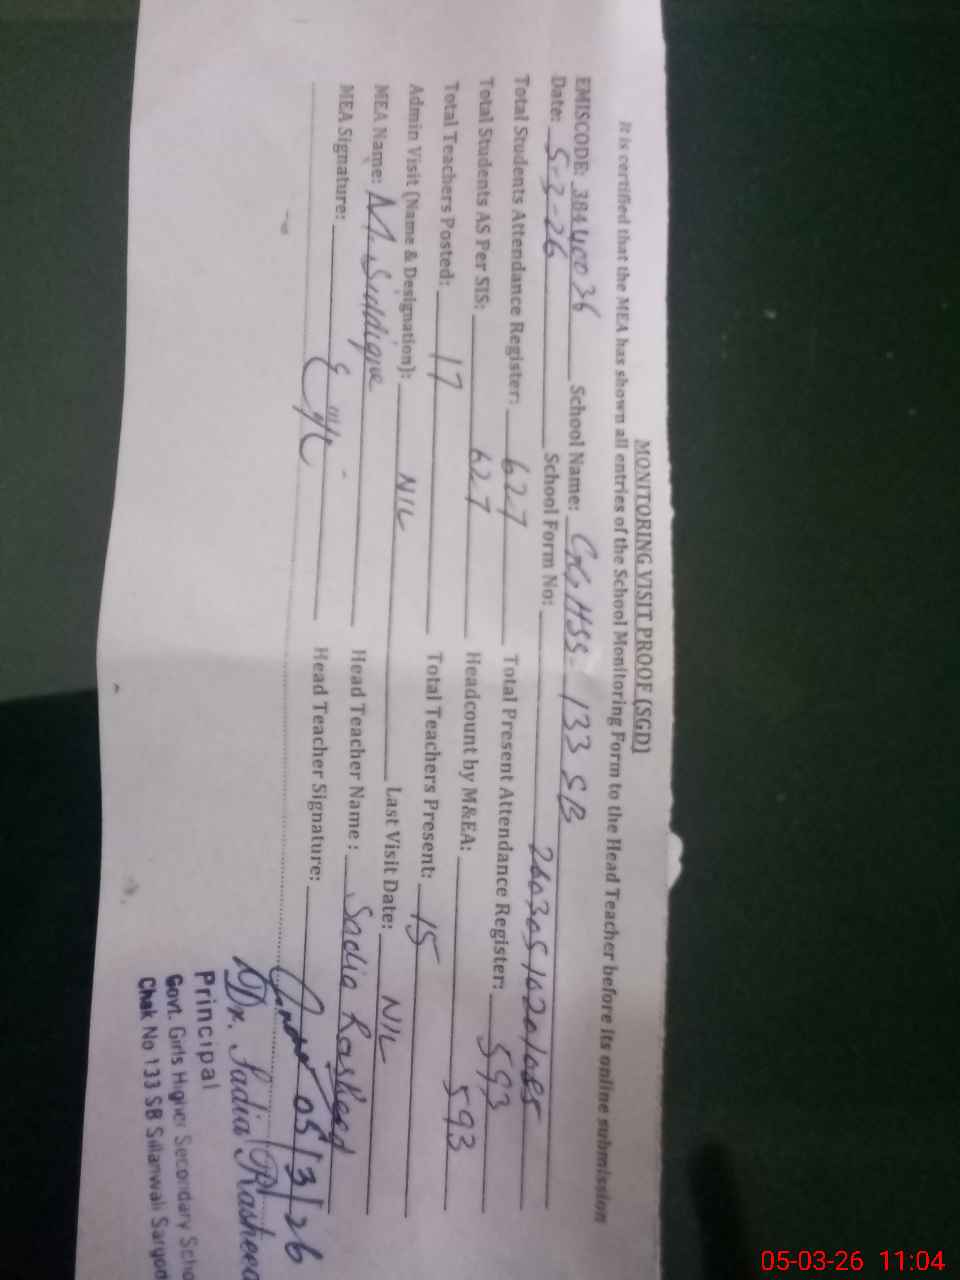 MONITORING VISIT PROOF (SGD)
It is certified that the MEA has shown all entries of the School Monitoring Form to the Head Teacher before its online submission
EMISCODE: 38440036 School Name: GGHSS- 133 SB
Date: 5-3-26 School Form No:
Total Students Attendance Register: 627 Total Present Attendance Register: 593
Total Students AS Per SIS: 627 Headcount by M&EA: 593
Total Teachers Posted: 17 Total Teachers Present: 15
Admin Visit (Name & Designation): NIL Last Visit Date: NIL
MEA Name: M. Siddique Head Teacher Name: Sadia Rasheed
MEA Signature: Head Teacher Signature: 05/3/26
Dr. Sadia Rasheed
Principal
Govt. Girls Higher Secondary Scho
Chak No 133 SB Sillanwali Sargod
05-03-26 11:04